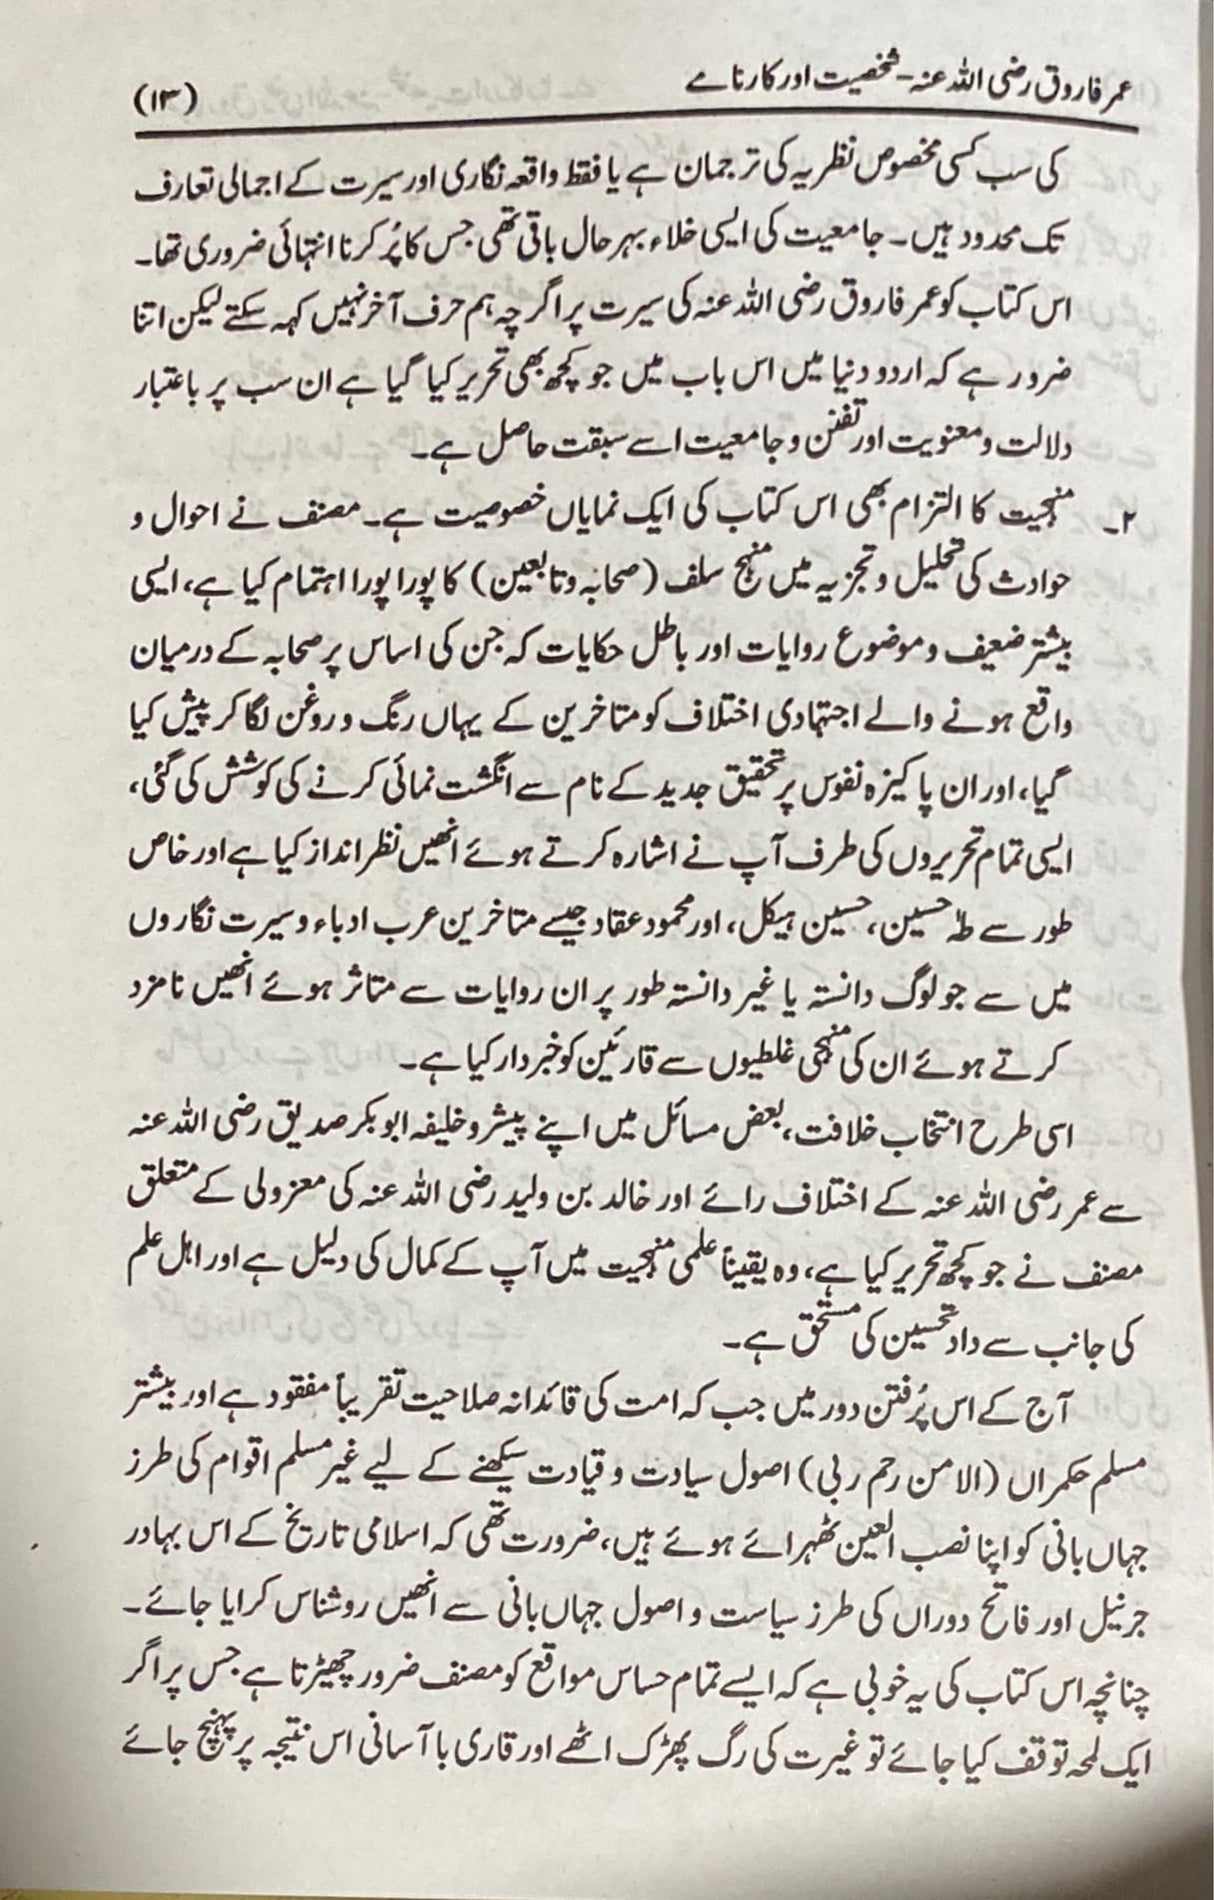 عمر فاروق رضی اللہ عنہ - شخصیت اور کارنامے
(۱۳)
کی سب کسی مخصوص نظریہ کی ترجمان ہے یا فقط واقعہ نگاری اور سیرت کے اجمالی تعارف
تک محدود ہیں۔ جامعیت کی ایسی خلاء بہرحال باقی تھی جس کا پُر کرنا انتہائی ضروری تھا۔
اس کتاب کو عمر فاروق رضی اللہ عنہ کی سیرت پر اگرچہ ہم حرف آخر نہیں کہہ سکتے لیکن اتنا
ضرور ہے کہ اردو دنیا میں اس باب میں جو کچھ بھی تحریر کیا گیا ہے ان سب پر باعتبار
دلالت و معنویت اور تفنن و جامعیت اسے سبقت حاصل ہے۔
۲۔ منہجیت کا التزام بھی اس کتاب کی ایک نمایاں خصوصیت ہے۔ مصنف نے احوال و
حوادث کی تحلیل و تجزیہ میں منہج سلف (صحابہ و تابعین) کا پورا پورا اہتمام کیا ہے، ایسی
بیشتر ضعیف و موضوع روایات اور باطل حکایات کہ جن کی اساس پر صحابہ کے درمیان
واقع ہونے والے اجتہادی اختلاف کو متاخرین کے یہاں رنگ و روغن لگا کر پیش کیا
گیا، اور ان پاکیزہ نفوس پر تحقیق جدید کے نام سے انگشت نمائی کرنے کی کوشش کی گئی،
ایسی تمام تحریروں کی طرف آپ نے اشارہ کرتے ہوئے انھیں نظر انداز کیا ہے اور خاص
طور سے طہٰ حسین، حسین ہیکل، اور محمود عقاد جیسے متاخرین عرب ادباء و سیرت نگاروں
میں سے جو لوگ دانستہ یا غیر دانستہ طور پر ان روایات سے متاثر ہوئے انھیں نامزد
کرتے ہوئے ان کی منہجی غلطیوں سے قارئین کو خبردار کیا ہے۔
اسی طرح انتخاب خلافت، بعض مسائل میں اپنے پیشرو خلیفہ ابوبکر صدیق رضی اللہ عنہ
سے عمر رضی اللہ عنہ کے اختلاف رائے اور خالد بن ولید رضی اللہ عنہ کی معزولی کے متعلق
مصنف نے جو کچھ تحریر کیا ہے، وہ یقیناً علمی منہجیت میں آپ کے کمال کی دلیل ہے اور اہل علم
کی جانب سے داد تحسین کی مستحق ہے۔
آج کے اس پُرفتن دور میں جب کہ امت کی قائدانہ صلاحیت تقریباً مفقود ہے اور بیشتر
مسلم حکمراں (الا من رحم ربی) اصول سیادت و قیادت سیکھنے کے لیے غیر مسلم اقوام کی طرز
جہاں بانی کو اپنا نصب العین ٹھہرائے ہوئے ہیں، ضرورت تھی کہ اسلامی تاریخ کے اس بہادر
جرنیل اور فاتح دوراں کی طرز سیاست و اصول جہاں بانی سے انھیں روشناس کرایا جائے۔
چنانچہ اس کتاب کی یہ خوبی ہے کہ ایسے تمام حساس مواقع کو مصنف ضرور چھیڑتا ہے جس پر اگر
ایک لمحہ توقف کیا جائے تو غیرت کی رگ پھڑک اٹھے اور قاری با آسانی اس نتیجہ پر پہنچ جائے